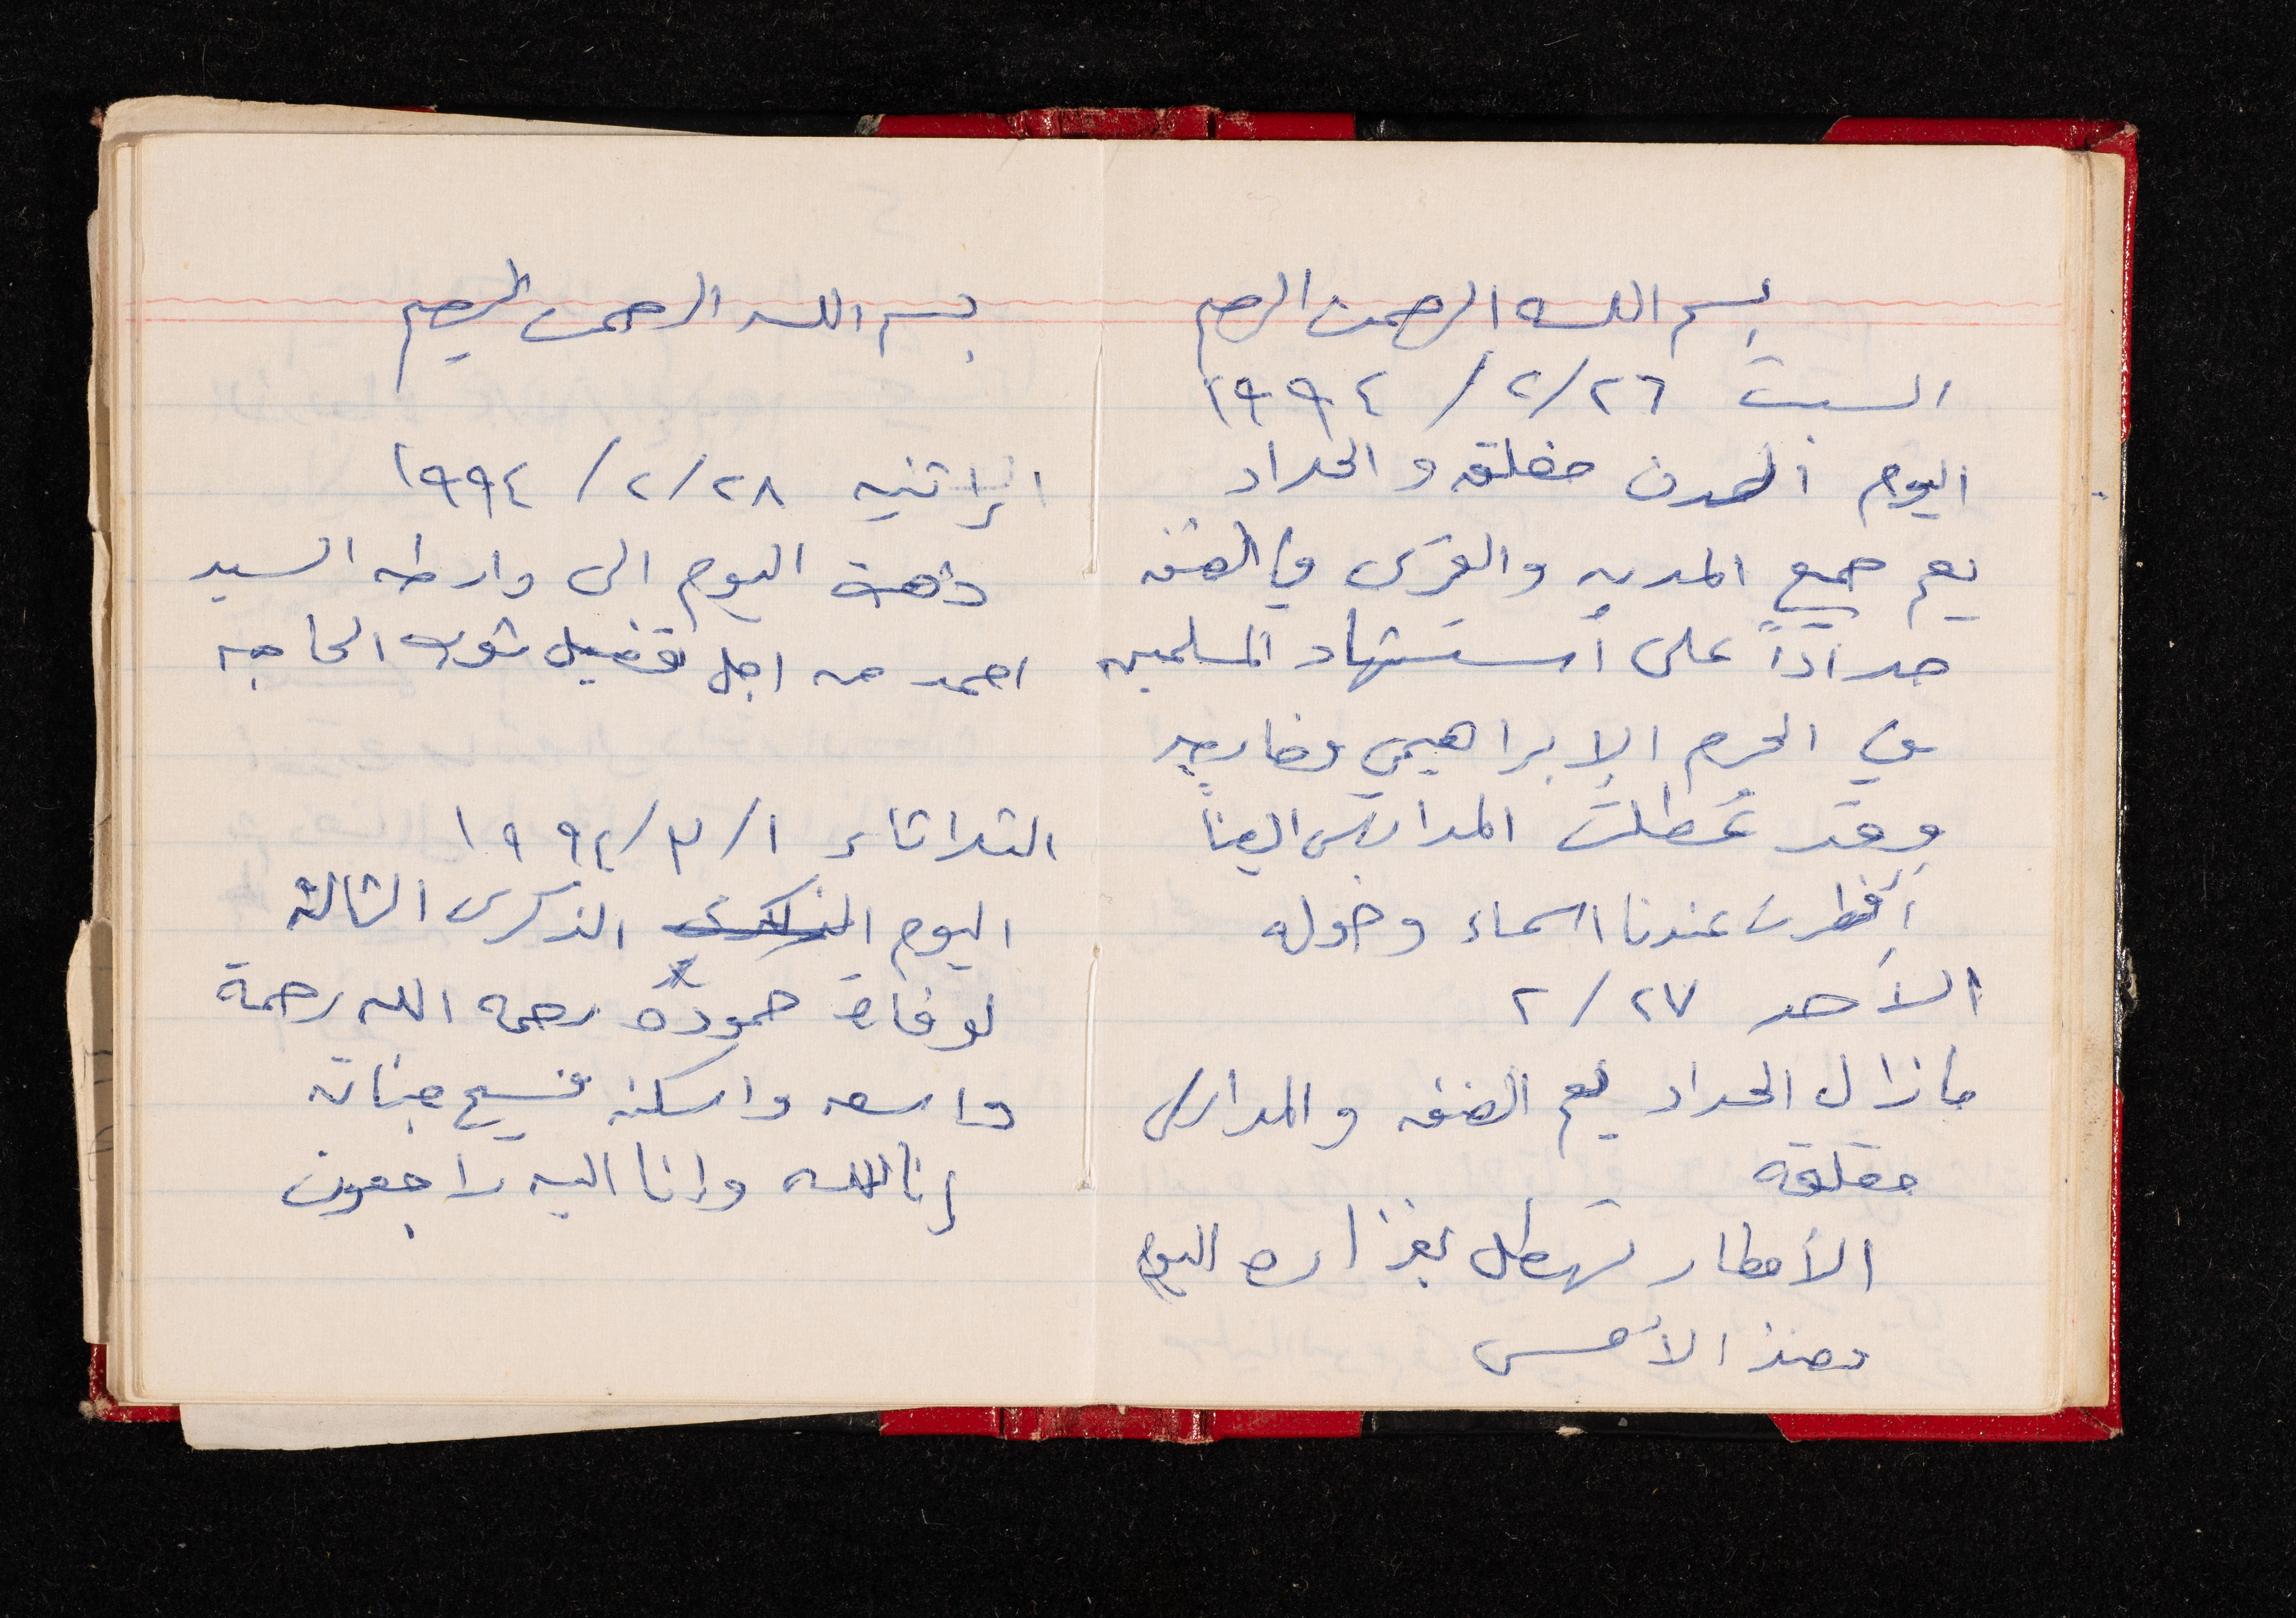 بسم الله الرحمن الرحيم
السبت ٢٦/٢/١٩٩٤
اليوم المدن مغلقه والحداد
يعم جميع المدن والقرى في الضفه
حداداً على أستشهاد المسلمين
في الحرم الإبراهيمي
وقد عُطلت المدارس ايضاً
أفطرت عندنا اسماء وخوله
الأحد ٢٧/٢
مازال الحداد يعم الضفه والمدارس
مغلقه
الأمطار تهطل بغزاره اليوم
ومنذ الأمس
بسم الله الرحمن الرحيم
الإثنين ٢٨/٢/١٩٩٤
ذهبت اليوم الى السيد
احمد من اجل تفصيل ثوب الحاجه
الثلاثاء ١/٣/١٩٩٤
اليوم الذكرى الثالثه
لوفاة حموده رحمه الله رحمة
واسعه واسكنه فسيح جناته
إنا لله وإنا اليه راجعون